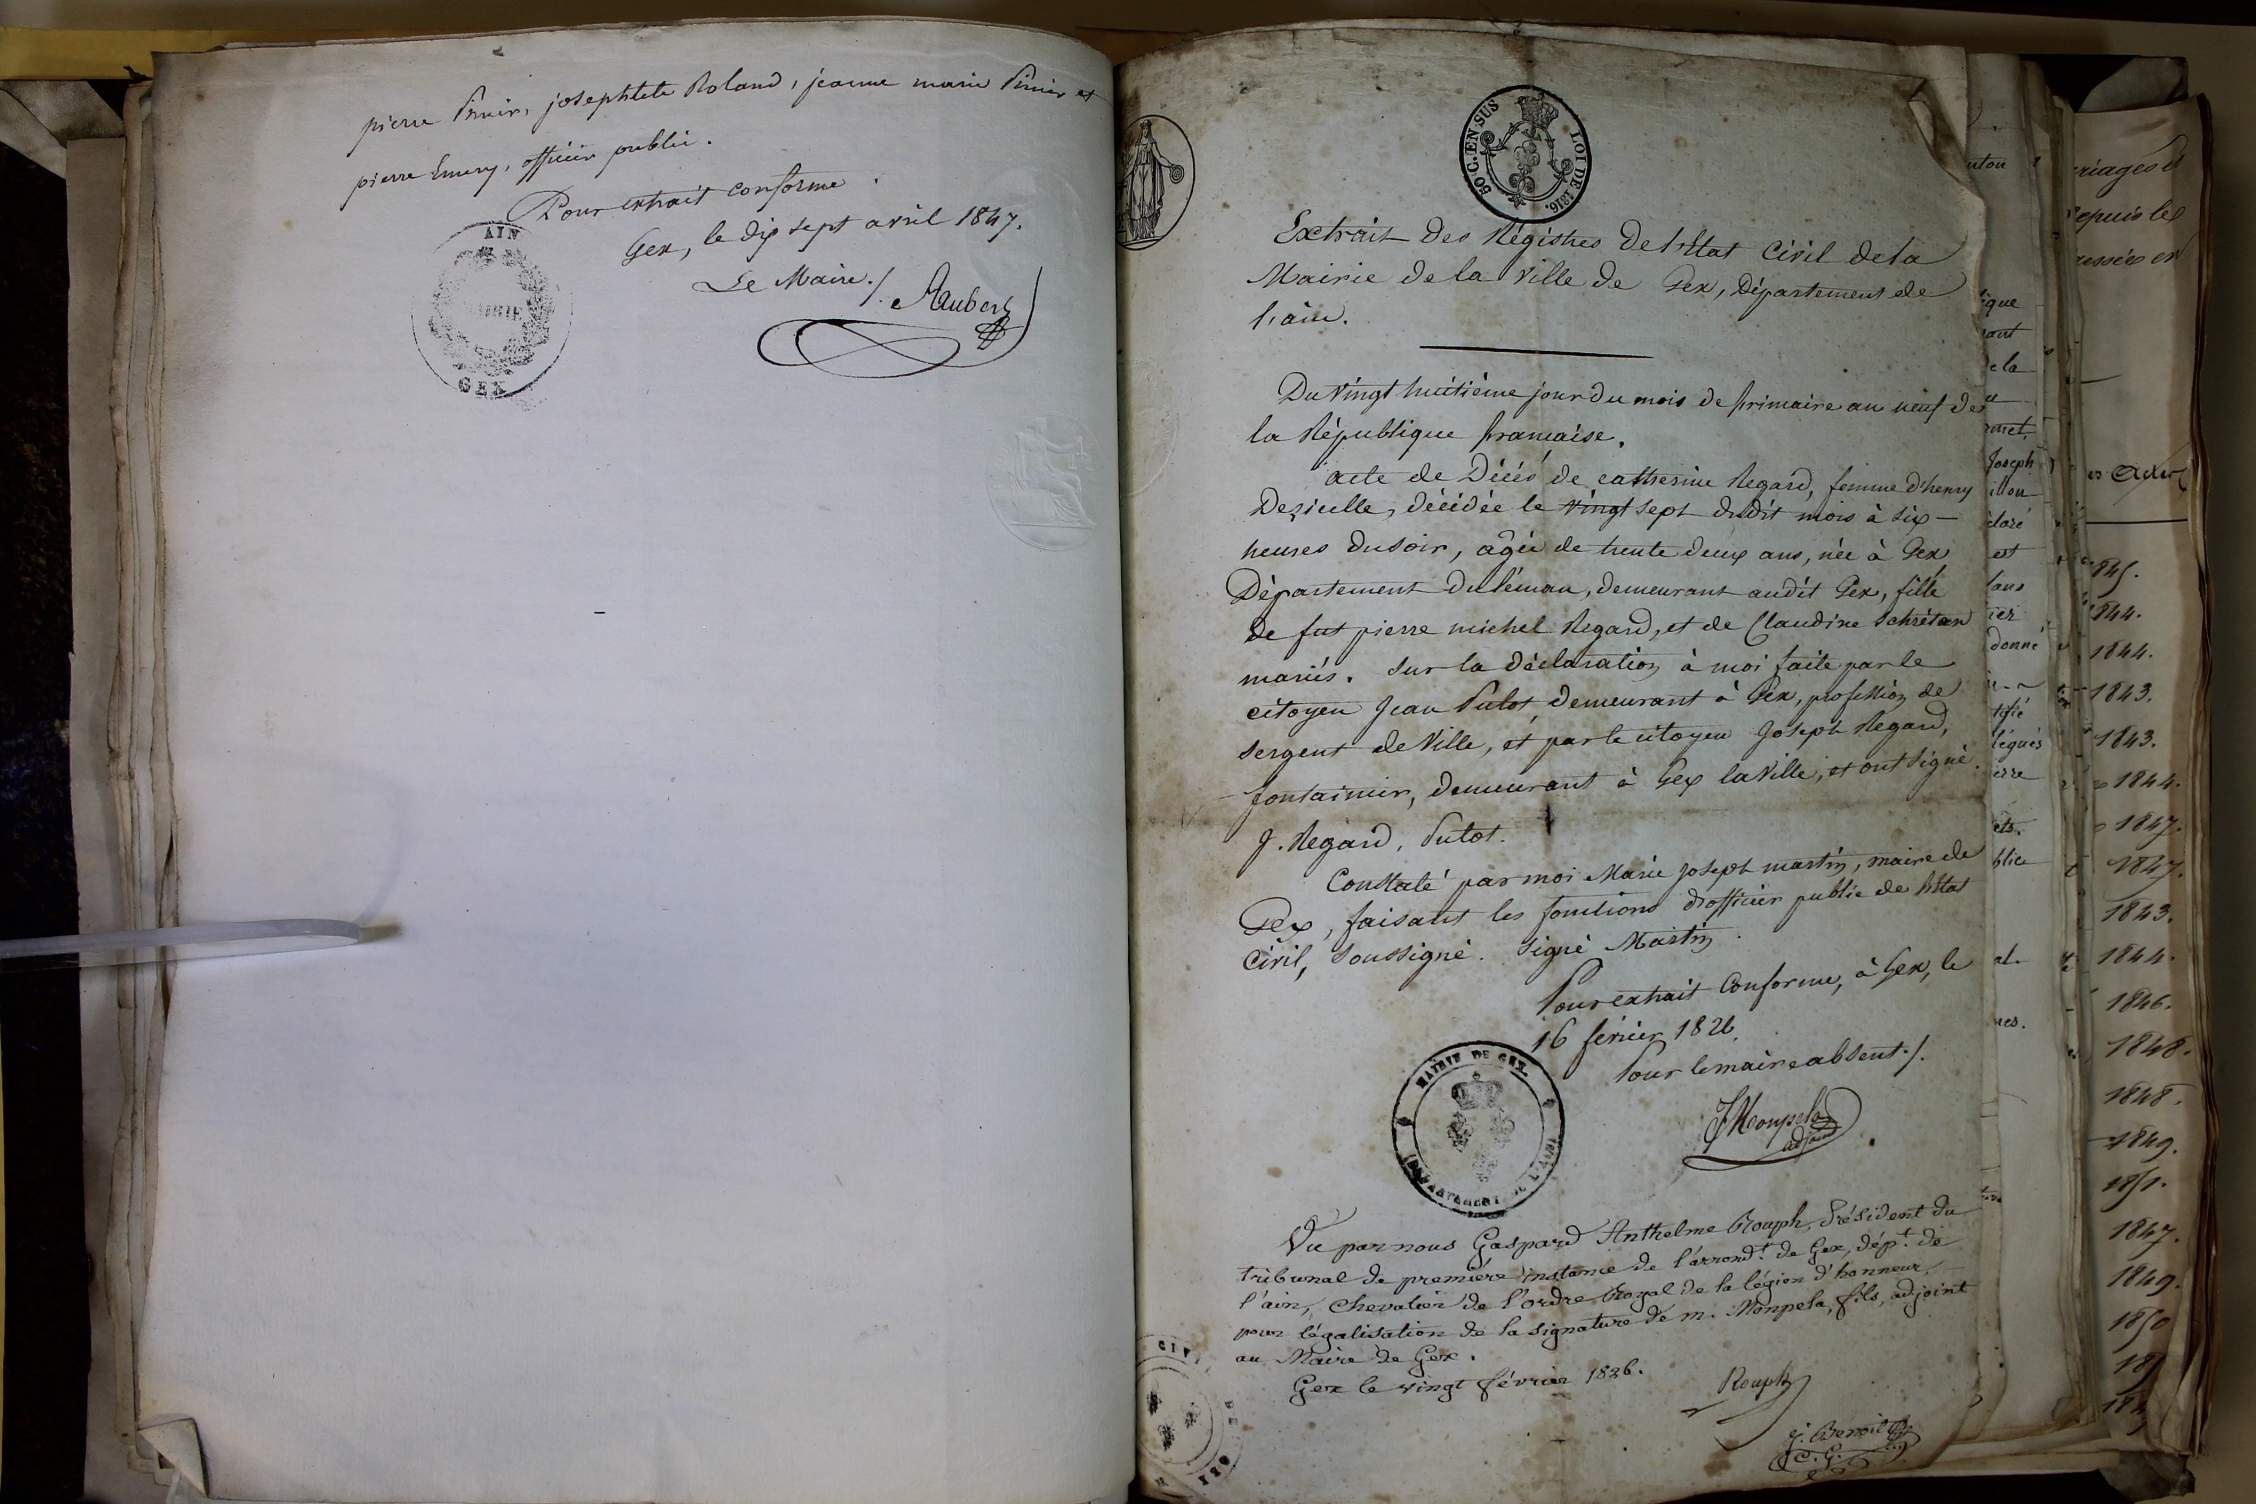 pierre Prunier, josephtete Roland, jeanne marie Prunier et
pierre Emery, officier public.
Pour extrait conforme.
Gex, le dix sept avril 1847.
Le Maire./.
Aubert
AIN
MAIRIE
GEX
50 C. EN SUS
LOI DE 1816.
Extrait des Régistres de l'Etat Civil de la
Mairie de la Ville de Gex, Département de
l'ain.
Du Vingt huitième jour du mois de frimaire an neuf de
la République française.
acte de Décés de catherine Regard, femme d'henry
décédée le vingt sept dudit mois à six
heures du soir, agée de trente deux ans, née à Gex
Département du léman, demeurant audit Gex, fille
de fut pierre michel Regard, et de Claudine Schrétan
mariés. Sur la déclaration à moi faite par le
citoyen Jean Putot demeurant à Gex, profession de
sergent de Ville, et par le citoyen Joseph Regard,
fontainier, demeurant à Gex la Ville, et ont signé.
J. Regard, Putot.
Constaté par moi Marie Joseph Martin, maire de
Gex, faisant les fonctions d'officier public de l'Etat
Civil, soussigné. Signé Martin.
Pour extrait Conforme, à Gex, le
16 février 1826.
Pour le maire absent./.
adjoint
MAIRIE DE GEX.
DÉPARTEMENT DE L'AIN
Vu par nous Gaspard Anthelme Rouph, Président du
tribunal de première instance de l'arrond.t de Gex, dép.t de
l'ain, Chevalier de l'ordre Royal de la légion d'honneur,
pour légalisation de la signature de m. Monpela, fils, adjoint
au Maire de Gex.
Gex le vingt février 1826.
Rouph
J. Benoit
C. G.
donné
Joseph
1844.
1844.
1843.
1843.
1844.
1847.
1847.
1843.
1844.
1846.
1848.
1848.
1849.
1851.
1847.
1849.
1850